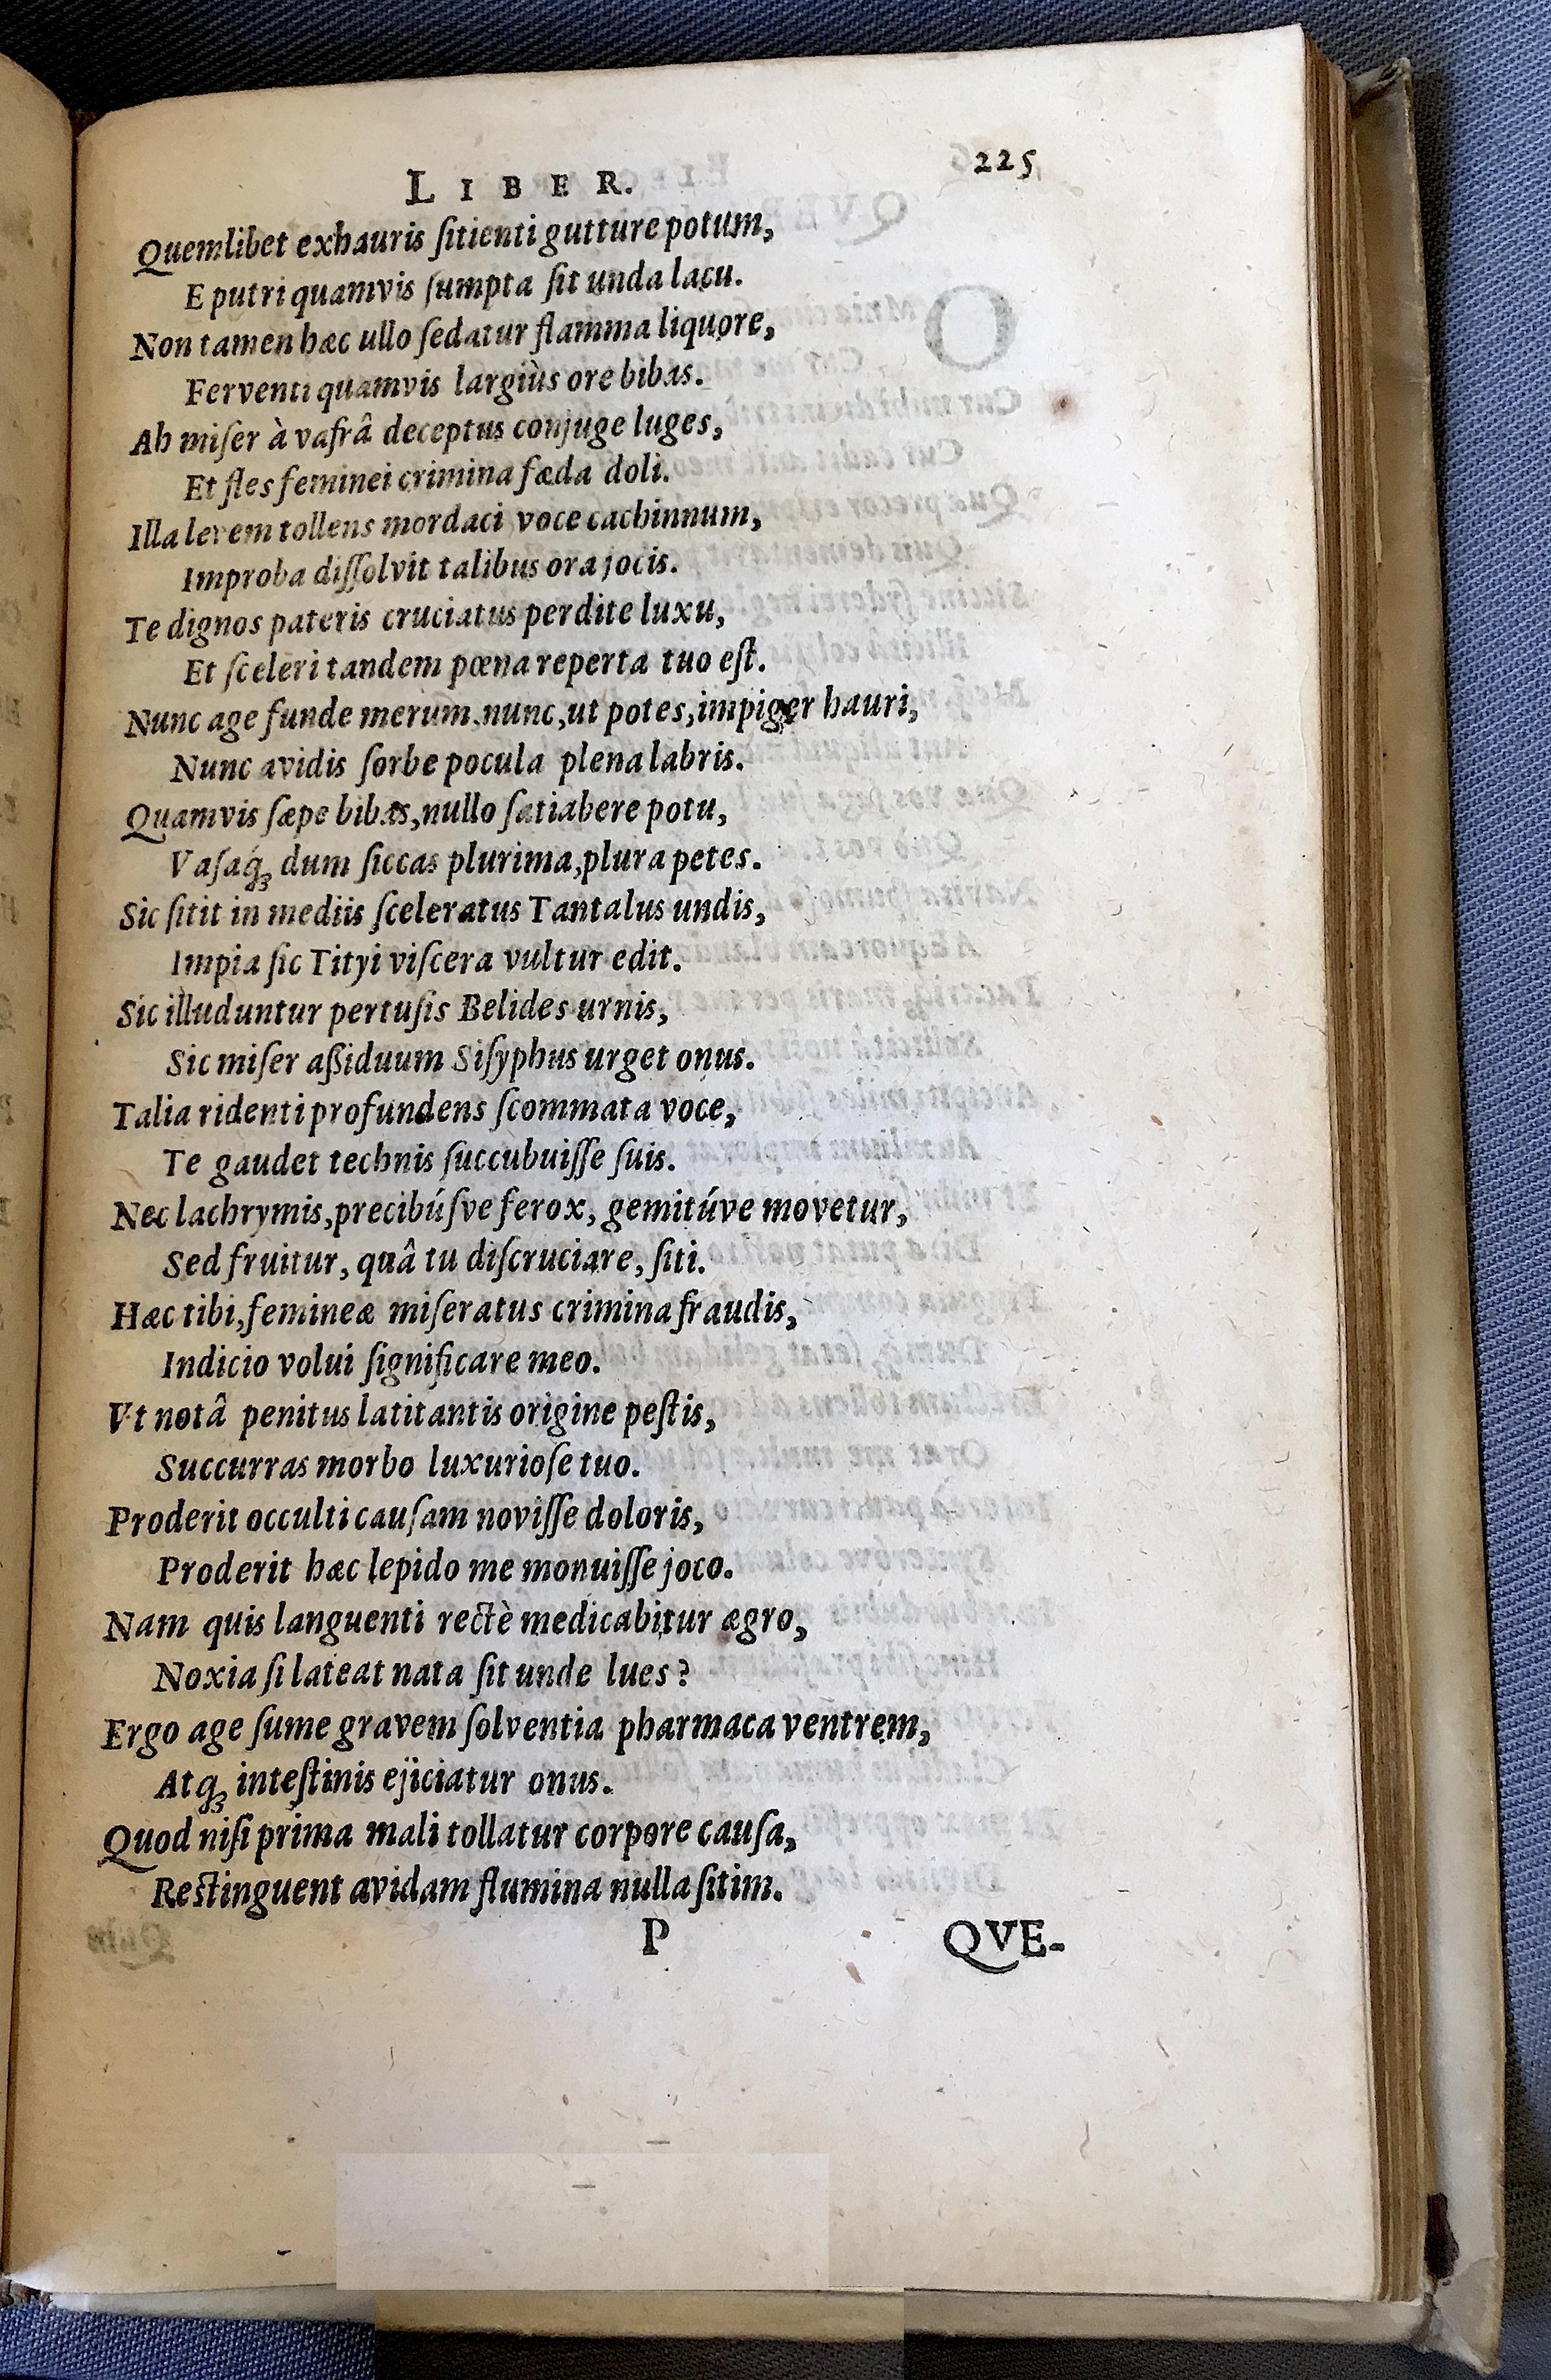 LIBER. 225
Quemlibet exhauris ſitienti gutture potum,
E putri quamvis ſumpta ſit unda lacu.
Non tamen hæc ullo ſedatur flamma liquore,
Ferventi quamvis largiùs ore bibas.
Ah miſer à vafrâ deceptus conjuge luges,
Et fles feminei crimina fæda doli.
Illa levem tollens mordaci voce cachinnum,
Improba diſſolvit talibus ora jocis.
Te dignos pateris cruciatus perdite luxu,
Et ſceleri tandem pœna reperta tuo eſt.
Nunc age funde merum, nunc, ut potes, impiger hauri,
Nunc avidis ſorbe pocula plena labris.
Quamvis ſæpe bibas, nullo ſatiabere potu,
Vaſaq́ꝫ dum ſiccas plurima, plura petes.
Sic ſitit in mediis ſceleratus Tantalus undis,
Impia ſic Tityi viſcera vultur edit.
Sic illuduntur pertuſis Belides urnis,
Sic miſer aßiduum Siſyphus urget onus.
Talia ridenti profundens ſcommata voce,
Te gaudet technis ſuccubuiſſe ſuis.
Nec lachrymis, precibúſve ferox, gemitúve movetur,
Sed fruitur, quâ tu diſcruciare, ſiti.
Hæc tibi, femineæ miſeratus crimina fraudis,
Indicio volui ſignificare meo.
Vt notâ penitus latitantis origine peſtis,
Succurras morbo luxurioſe tuo.
Proderit occulti cauſam noviſſe doloris,
Proderit hæc lepido me monuiſſe joco.
Nam quis languenti rectè medicabitur ægro,
Noxia ſi lateat nata ſit unde lues?
Ergo age ſume gravem ſolventia pharmaca ventrem,
Atqꝫ inteſtinis ejiciatur onus.
Quod niſi prima mali tollatur corpore cauſa,
Reſtinguent avidam flumina nulla ſitim.
P QVE-